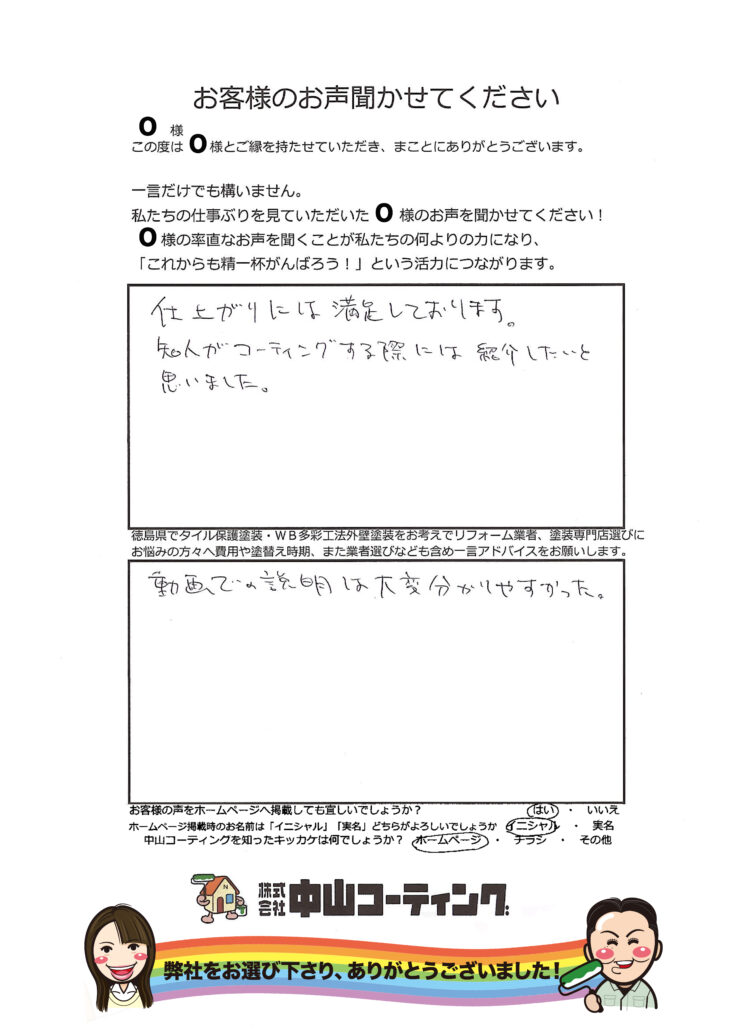 お客様のお声聞かせてください
O 様
この度は O 様とご縁を持たせていただき、まことにありがとうございます。
一言だけでも構いません。
私たちの仕事ぶりを見ていただいた O 様のお声を聞かせてください!
O 様の率直なお声を聞くことが私たちの何よりの力になり、
「これからも精一杯がんばろう!」という活力につながります。
仕上がりには満足しております。
知人がコーティングする際には紹介したいと
思いました。
徳島県でタイル保護塗装・WB多彩工法外壁塗装をお考えでリフォーム業者、塗装専門店選びに
お悩みの方々へ費用や塗替え時期、また業者選びなども含め一言アドバイスをお願いします。
動画での説明は大変分かりやすかった。
お客様の声をホームページへ掲載しても宜しいでしょうか? はい ・ いいえ
ホームページ掲載時のお名前は「イニシャル」「実名」どちらがよろしいでしょうか イニシャル ・ 実名
中山コーティングを知ったキッカケは何でしょうか? ホームページ ・ チラシ ・ その他
N
株式会社 中山コーティング
弊社をお選び下さり、ありがとうございました!